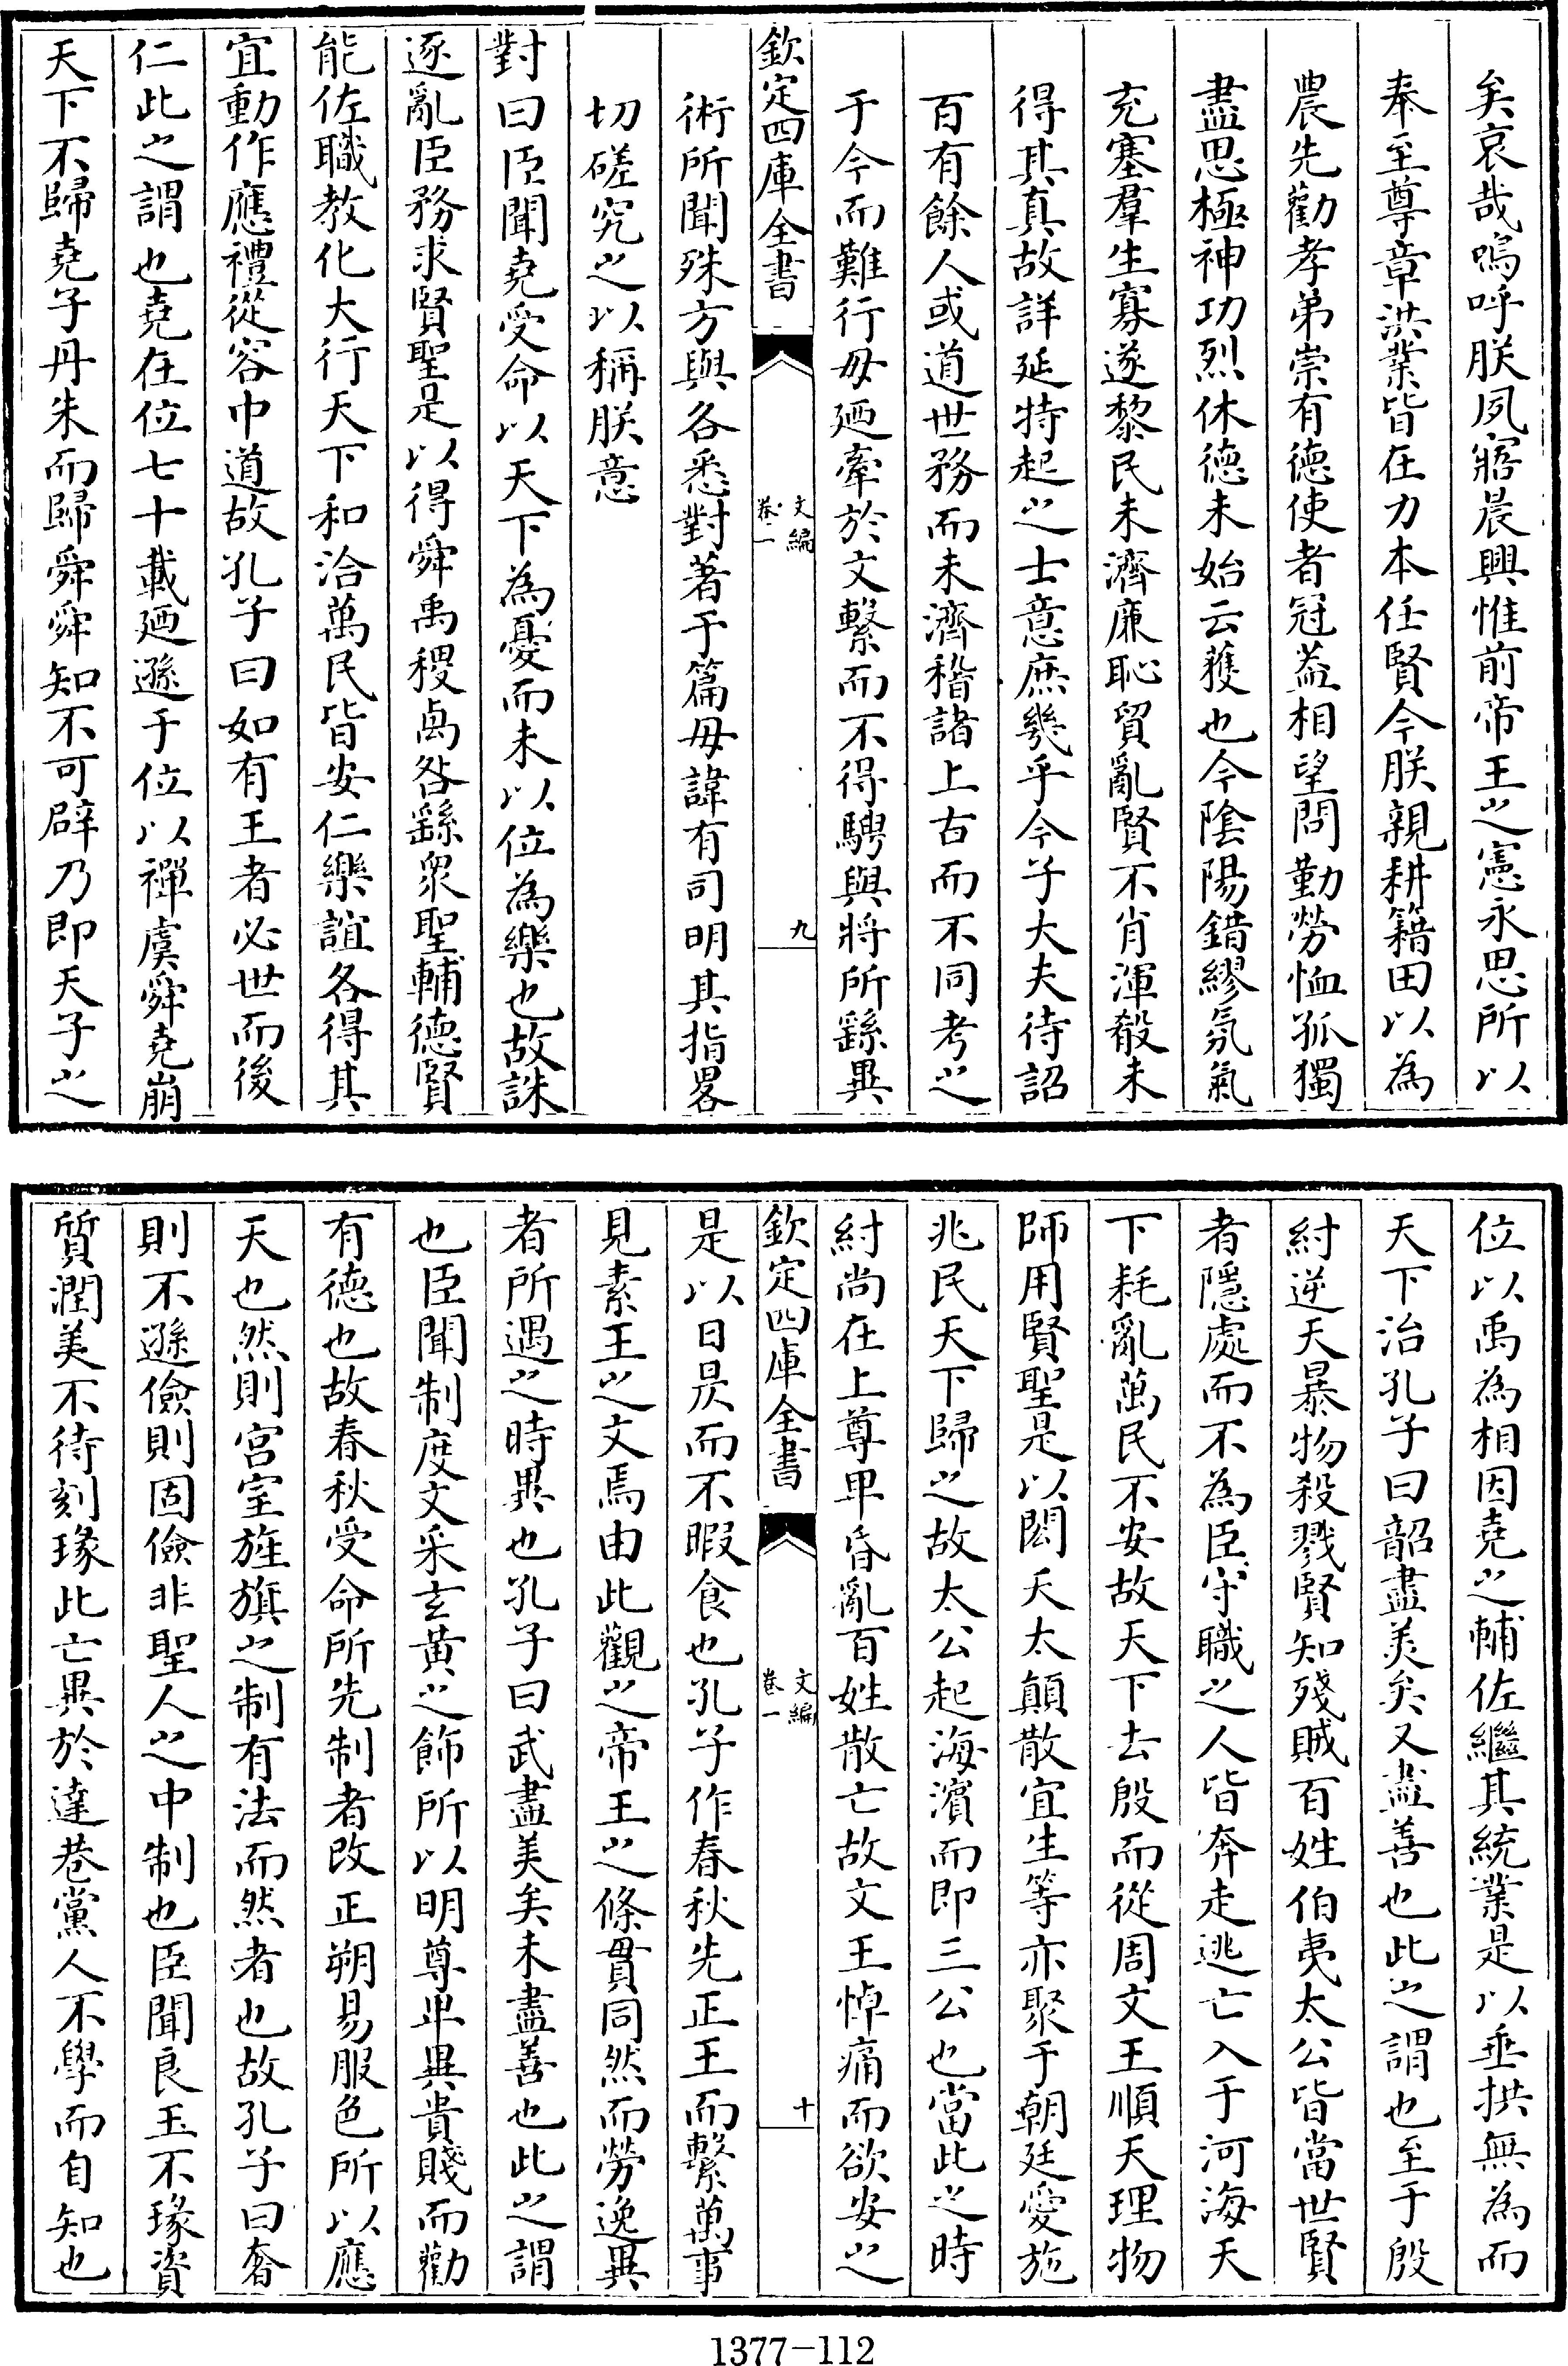 矣哀哉嗚呼朕夙寤晨興惟前帝王之憲永思所以
奉至尊章洪業皆在力本任賢今朕親耕籍田以為
農先勸孝弟崇有德使者冠葢相望問勤勞恤孤獨
盡思極神功烈休德未始云獲也今陰陽錯繆氛氣
充塞羣生寡遂黎民未濟廉恥貿亂賢不肖渾殽未
得其真故詳延特起之士意庶幾乎今子大夫待詔
百有餘人或道世務而未濟稽諸上古而不同考之
于今而難行毋廼牽於文繫而不得騁與將所繇異
欽定四庫全書
文編
卷一
九
術所聞殊方與各悉對著于篇毋諱有司明其指畧
切磋究之以稱朕意
對曰臣聞堯受命以天下為憂而未以位為樂也故誅
逐亂臣務求賢聖是以得舜禹稷卨咎繇衆聖輔德賢
能佐職教化大行天下和洽萬民皆安仁樂誼各得其
宜動作應禮從容中道故孔子曰如有王者必世而後
仁此之謂也堯在位七十載廼遜于位以禪虞舜堯崩
天下不歸堯子丹朱而歸舜舜知不可辟乃即天子之
位以禹為相因堯之輔佐繼其統業是以垂拱無為而
天下治孔子曰韶盡美矣又盡善也此之謂也至于殷
紂逆天暴物殺戮賢知殘賊百姓伯夷太公皆當世賢
者隱處而不為臣守職之人皆奔走逃亡入于河海天
下耗亂萬民不安故天下去殷而從周文王順天理物
師用賢聖是以閎夭太顛散宜生等亦聚于朝廷愛施
兆民天下歸之故太公起海濱而即三公也當此之時
紂尚在上尊卑昏亂百姓散亡故文王悼痛而欲安之
欽定四庫全書
文編
卷一
十
是以日昃而不暇食也孔子作春秋先正王而繫萬事
見素王之文焉由此觀之帝王之條貫同然而勞逸異
者所遇之時異也孔子曰武盡美矣未盡善也此之謂
也臣聞制度文采玄黃之飾所以明尊卑異貴賤而勸
有德也故春秋受命所先制者改正朔易服色所以應
天也然則宫室旌旗之制有法而然者也故孔子曰奢
則不遜儉則固儉非聖人之中制也臣聞良玉不瑑資
質潤美不待刻瑑此亡異於達巷黨人不學而自知也
1377-112